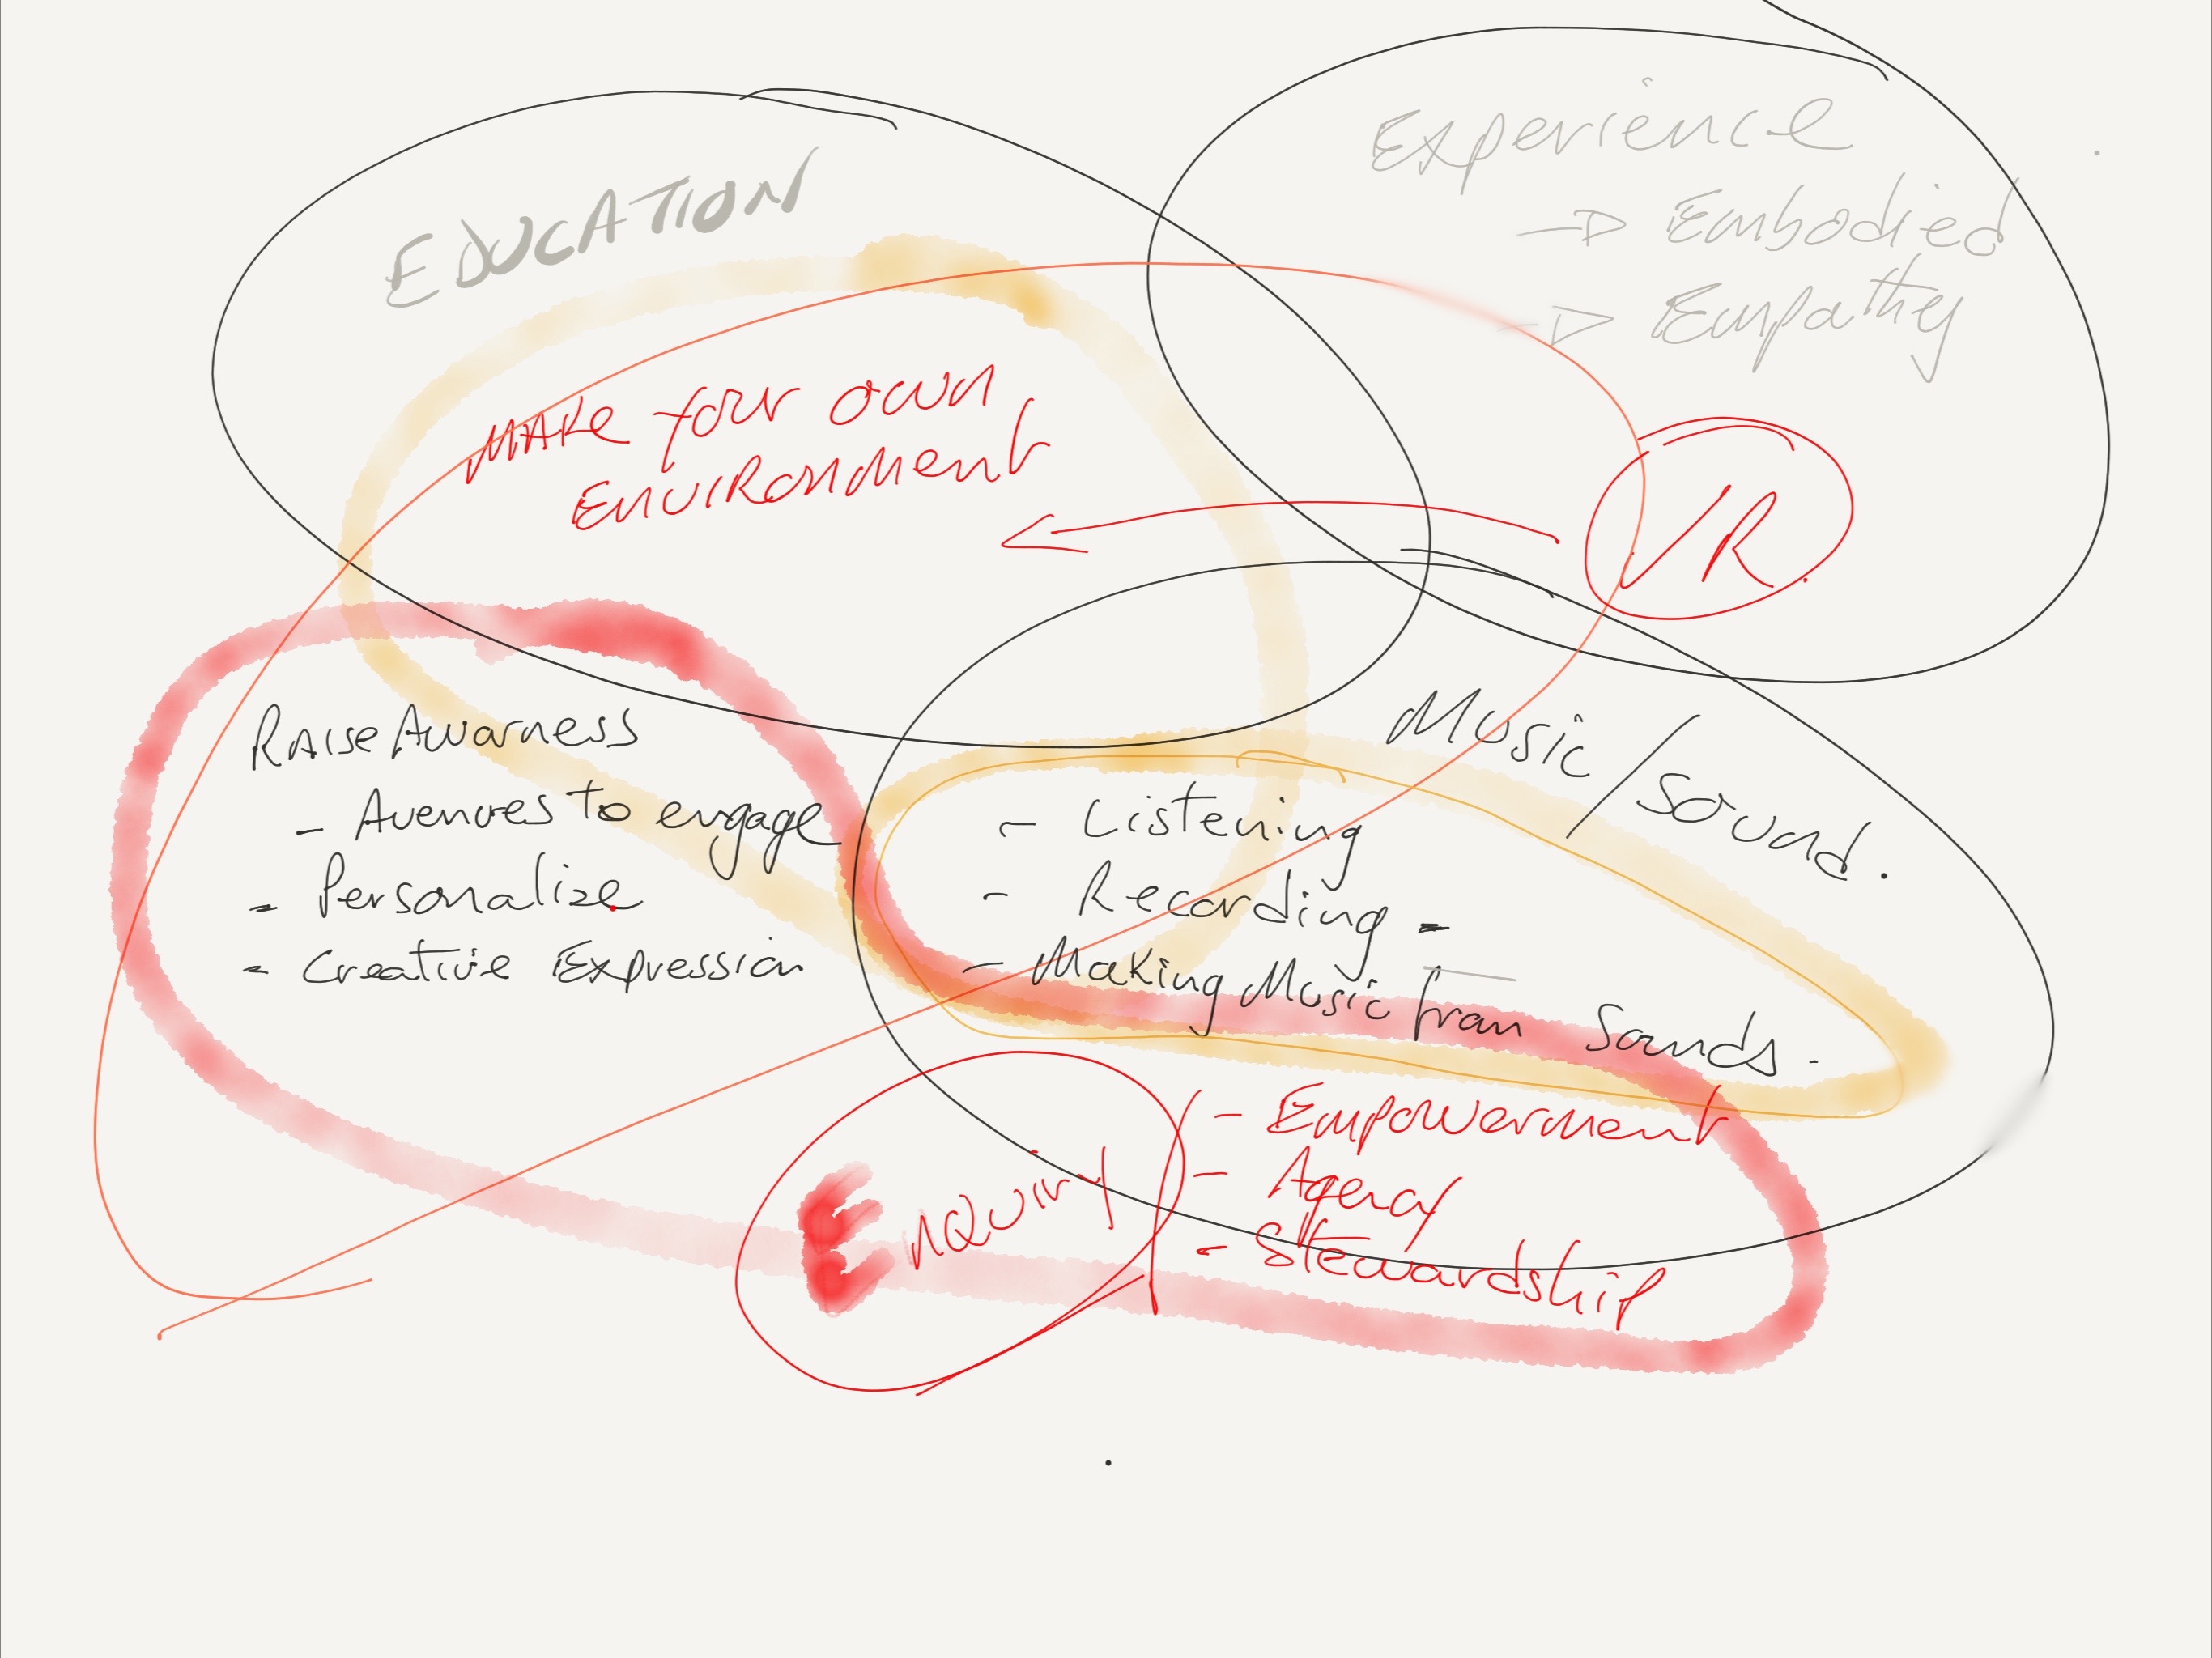 EDUCATION
Experience
→ Embodied
→ Empathy
MAKE your own
ENVIRONMENT
VR.
Music/Sound.
- Listening
- Recording -
- Making Music from Sounds.
RAISE Awarness
- Avenues to engage
- Personalize
- Creative Expression
Enquiry
- Empowerment
- Agency
- Stewardship